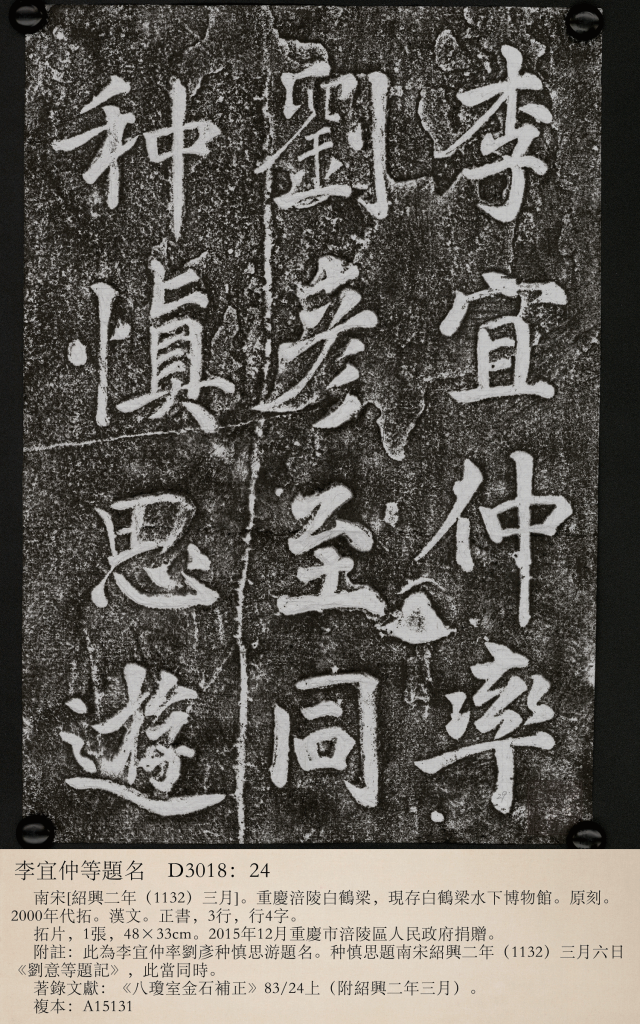 李宜仲率
劉彥至同
种慎思遊
李宜仲等題名　D3018：24
南宋[紹興二年（1132）三月]。重慶涪陵白鶴梁，現存白鶴梁水下博物館。原刻。
2000年代拓。漢文。正書，3行，行4字。
拓片，1張，48×33cm。2015年12月重慶市涪陵區人民政府捐贈。
附註：此為李宜仲率劉彥种慎思游題名。种慎思題南宋紹興二年（1132）三月六日
《劉意等題記》，此當同時。
著錄文獻：《八瓊室金石補正》83/24上（附紹興二年三月）。
複本：A15131